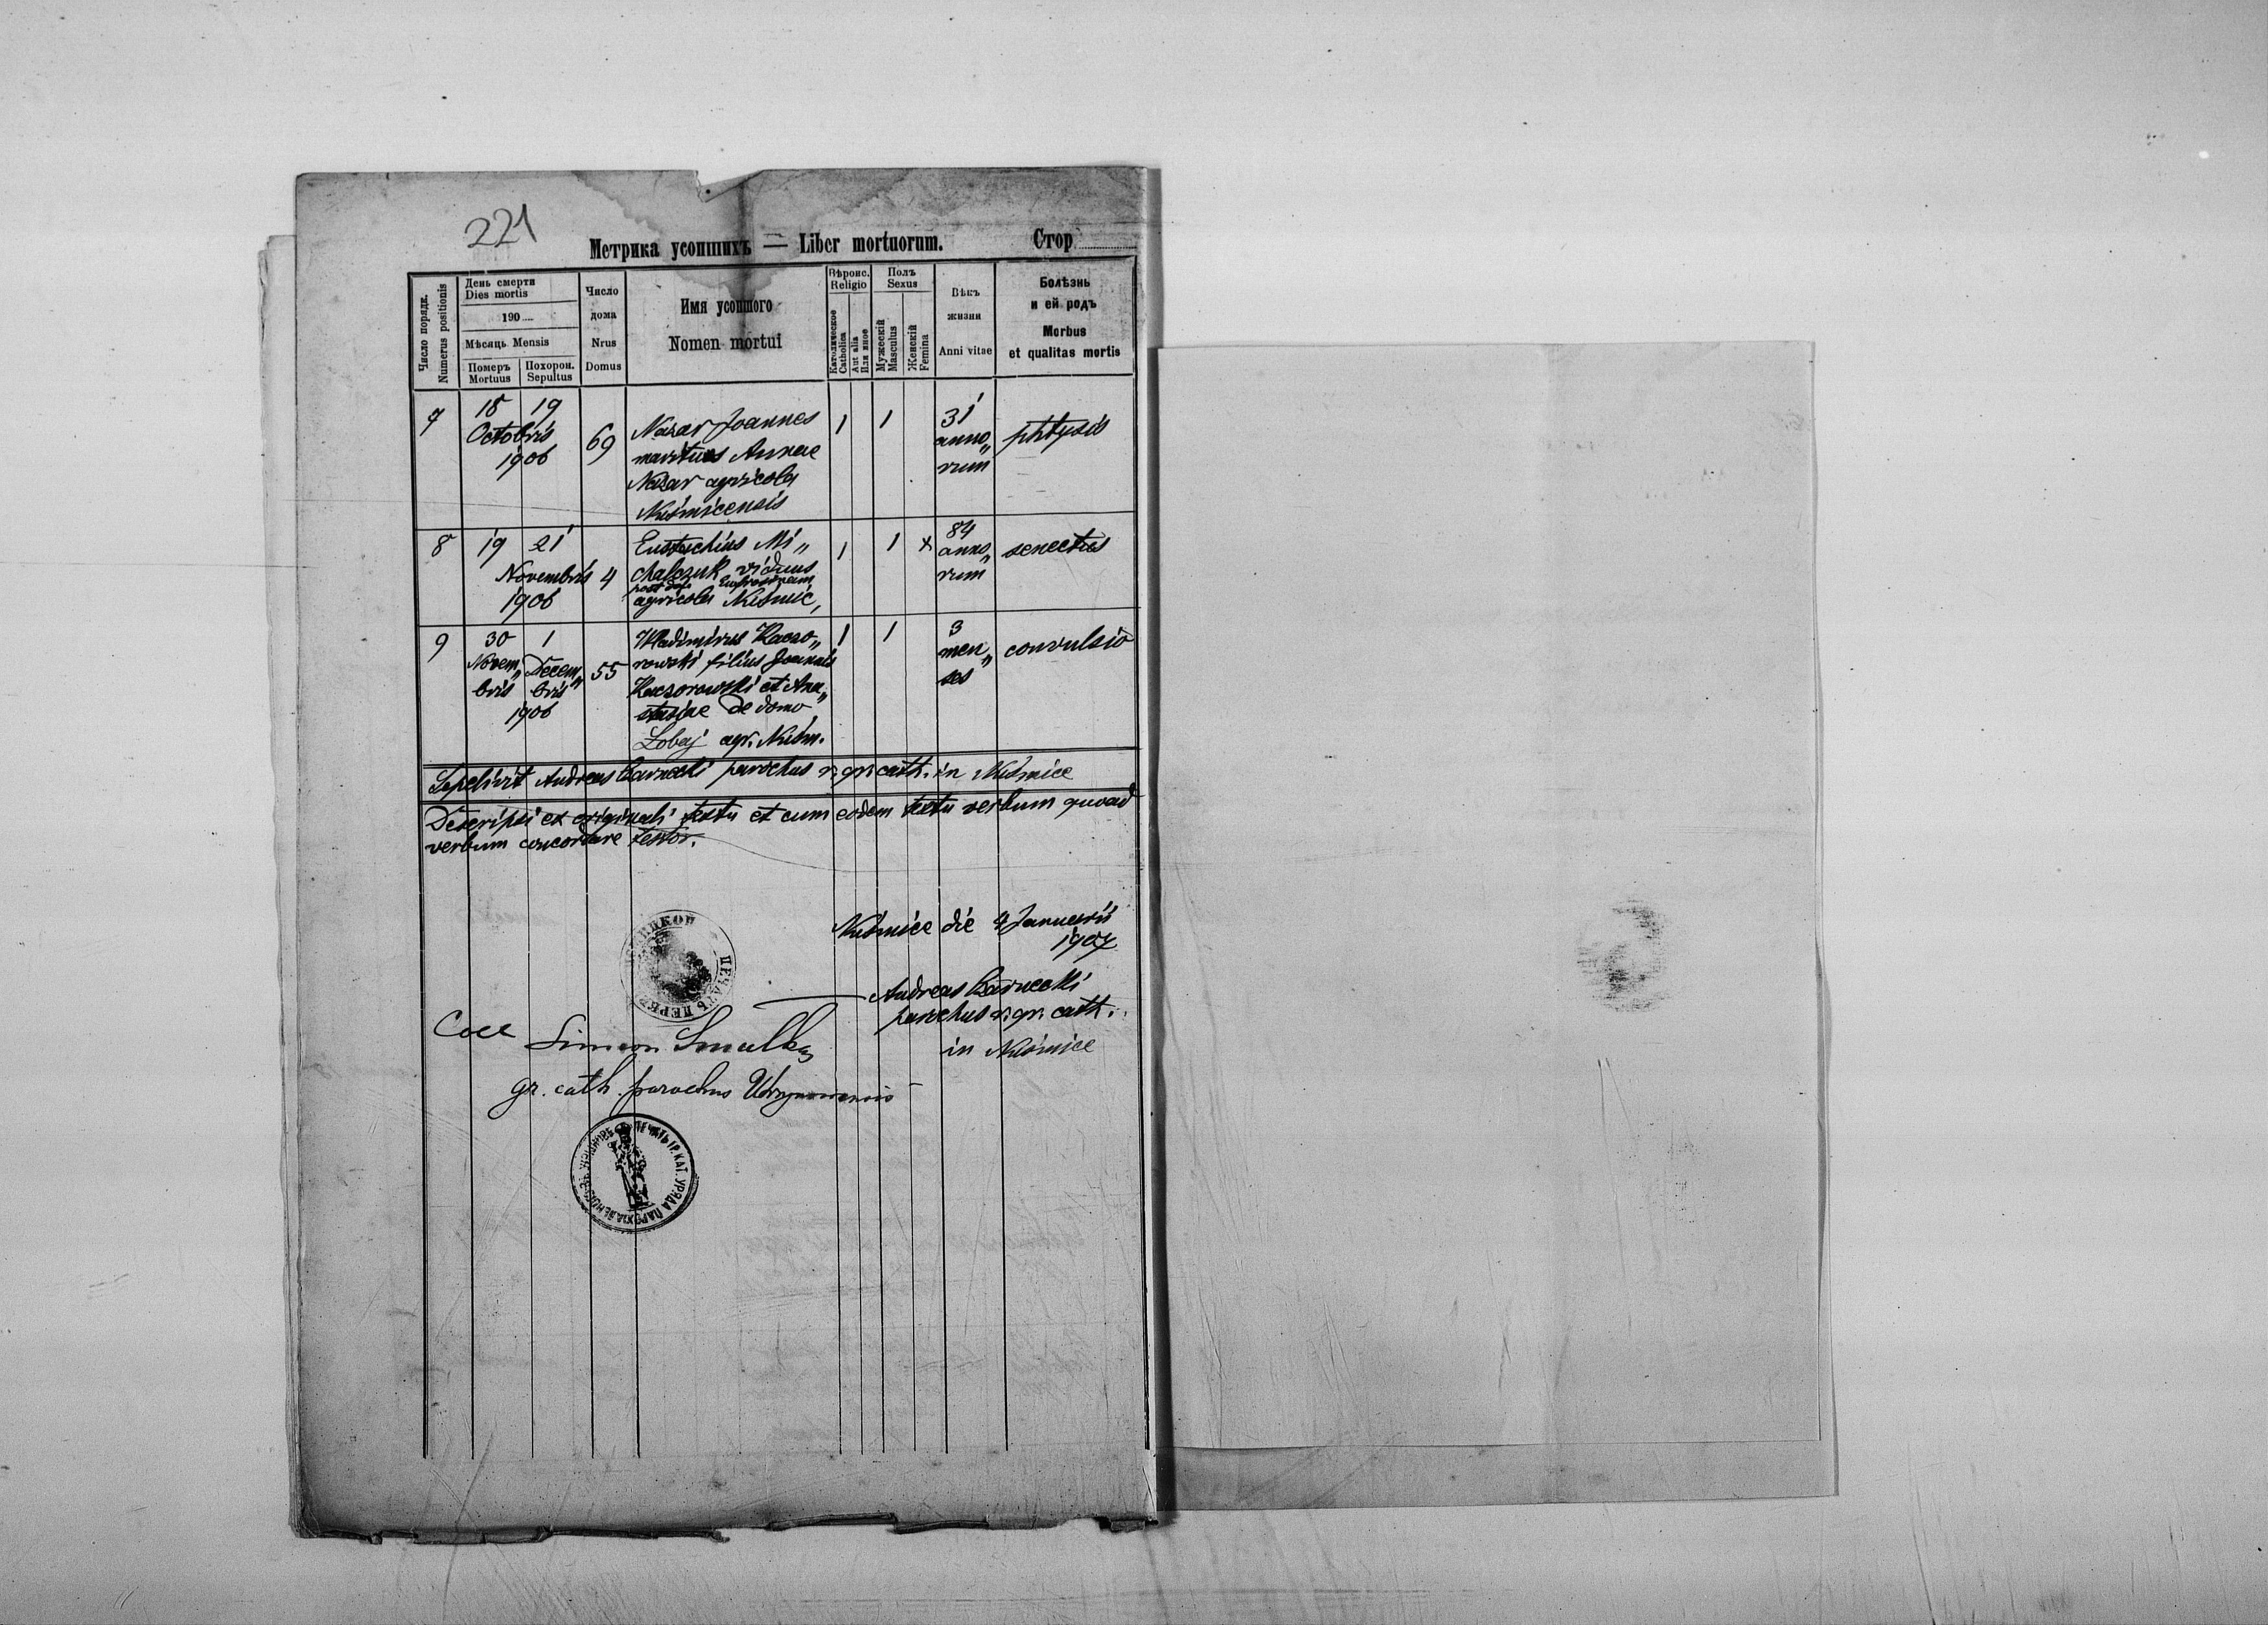 221
Метрика усопшихъ — Liber mortuorum. Стор
Число порядк.
Numerus positionis
День смерти
Dies mortis
190
Мѣсяць Mensis
Померъ
Mortuus
Похорон.
Sepultus
Число
дома
Nrus
Domus
Имя усопшого
Nomen mortui
Вѣроис.
Religio
Католическое
Catholica
Aut alia
Или иное
Полъ
Sexus
Мужескій
Masculus
Женскій
Femina
Вѣкъ
жизни
Anni vitae
Болѣзнь
и ей родъ
Morbus
et qualitas mortis
7 18 19 Octobris 1906 69
Nazar Joannes
maritus Annae
Nazar agricola
Nuśmicensis
1 1
31
anno„
rum
phtysis
8 19 21 Novembris 1906 4
Eustachius Mi„
chalczuk viduus
post def. Euphrosinam
agricola Nuśmic,
1 1 x
84
anno„
rum
senectus
9 30 Novem„ bris 1 Decem„ bris 1906 55
Wladimirus Kaczo„
rowski filius Joannis
Kaczorowski et Ana„
stasiae de domo
Lobaj agr. Nuśm.
1 1
3
men„
ses
convulsio
Sepelivit Andreas Barnecki parochus r. gr. cath. in Nuśmice
Descripsi ex originali textu et cum eodem textu verbum quoad
verbum concordare testor.
Nuśmice die 4 Januarii
1907
Andreas Barnecki
parochus r. gr. cath.
in Nuśmice
Coll
Simeon
gr. cath. parochus
ПЕЧАТЬ ГР. КАТ. УРЯДА